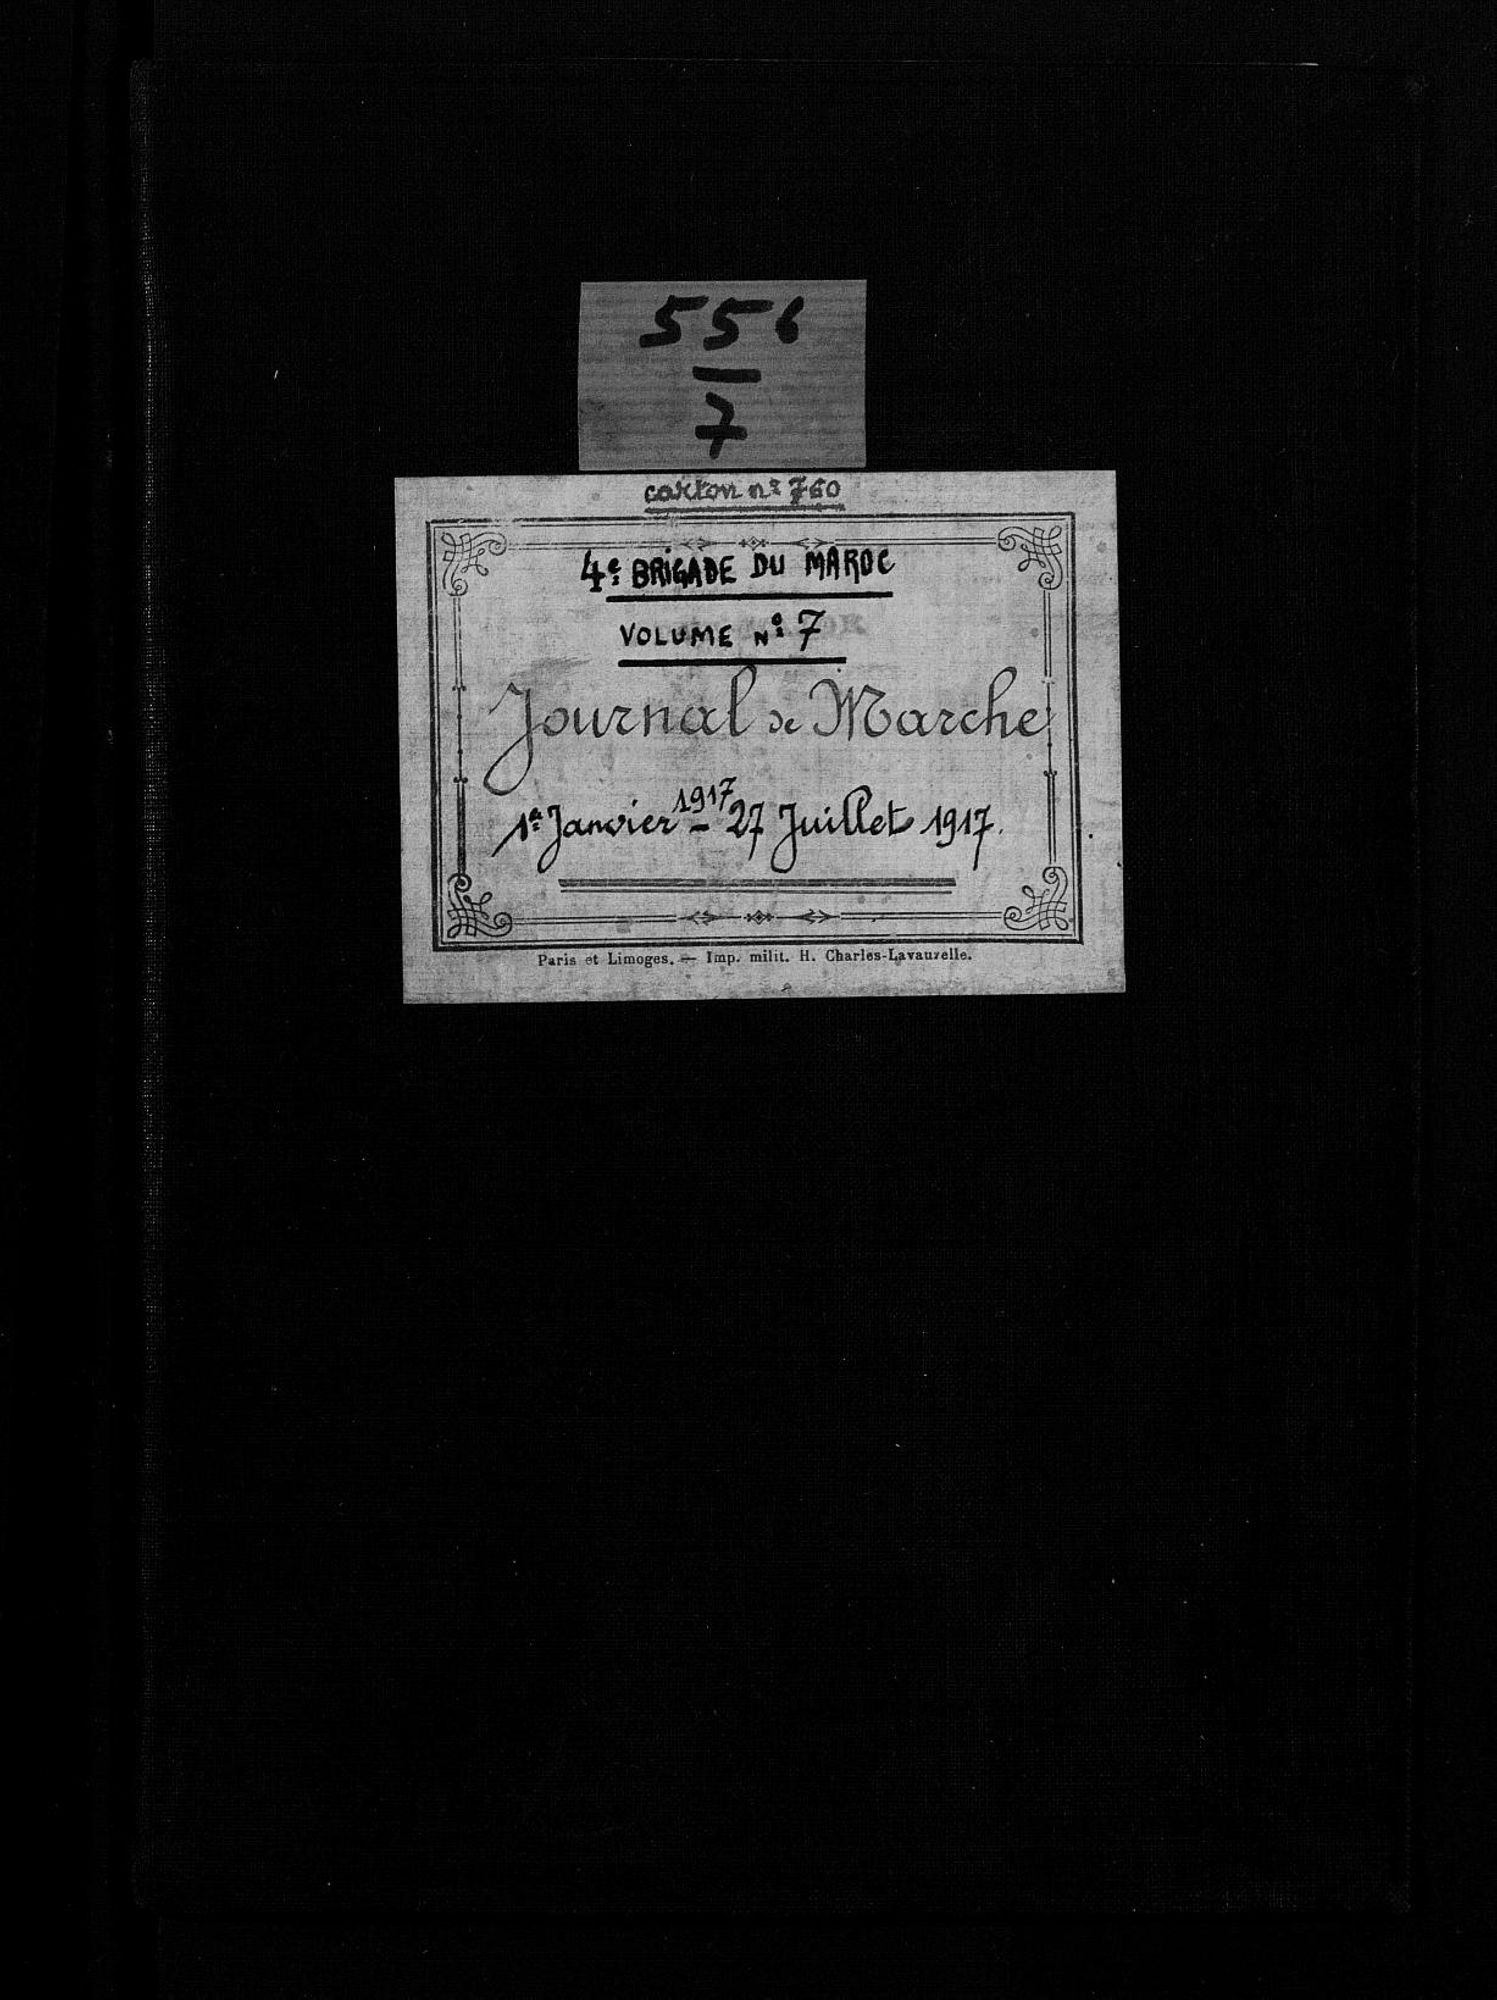 556
7
carton n° 760
4e BRIGADE DU MAROC
VOLUME N° 7
Journal de Marche
1er Janvier 1917 - 27 Juillet 1917.
Paris et Limoges. — Imp. milit. H. Charles-Lavauzelle.